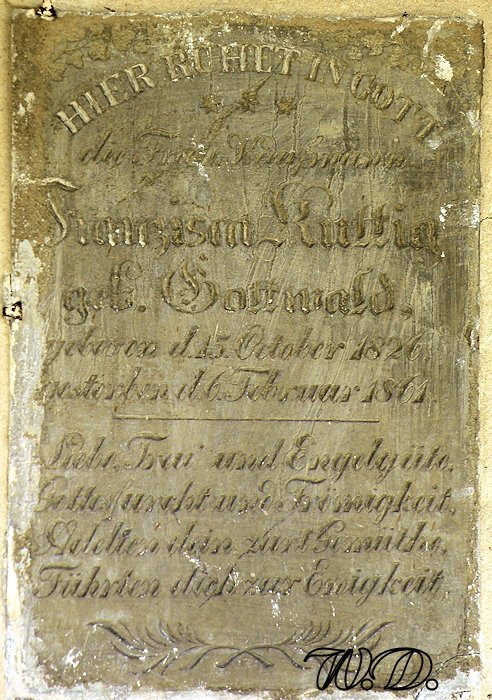 HIER RUHET IN GOTT
die Frau Kaufmann
Franzisca Ruttig
geb. Gottwald.
geboren d. 15. October 1826,
gestorben d. 6. Februar 1861.
Liebe, Treu' und Engelgüte,
Gottesfurcht und Frömigkeit,
Adelten dein zart Gemüthe,
Führten dich zur Ewigkeit.
W.D.